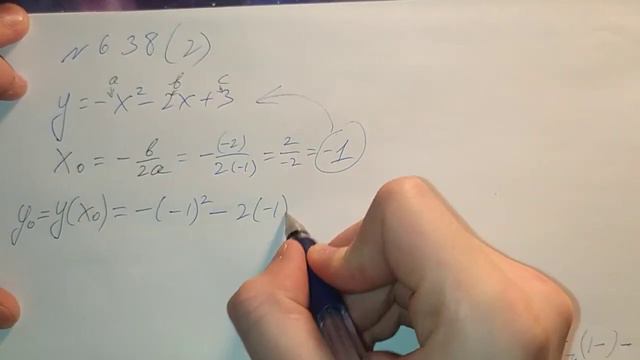 № 638 (2)
a b c
y = -x² - 2x + 3
x₀ = - b/2a = - (-2)/2(-1) = 2/-2 = -1
y₀ = y(x₀) = -(-1)² - 2(-1)